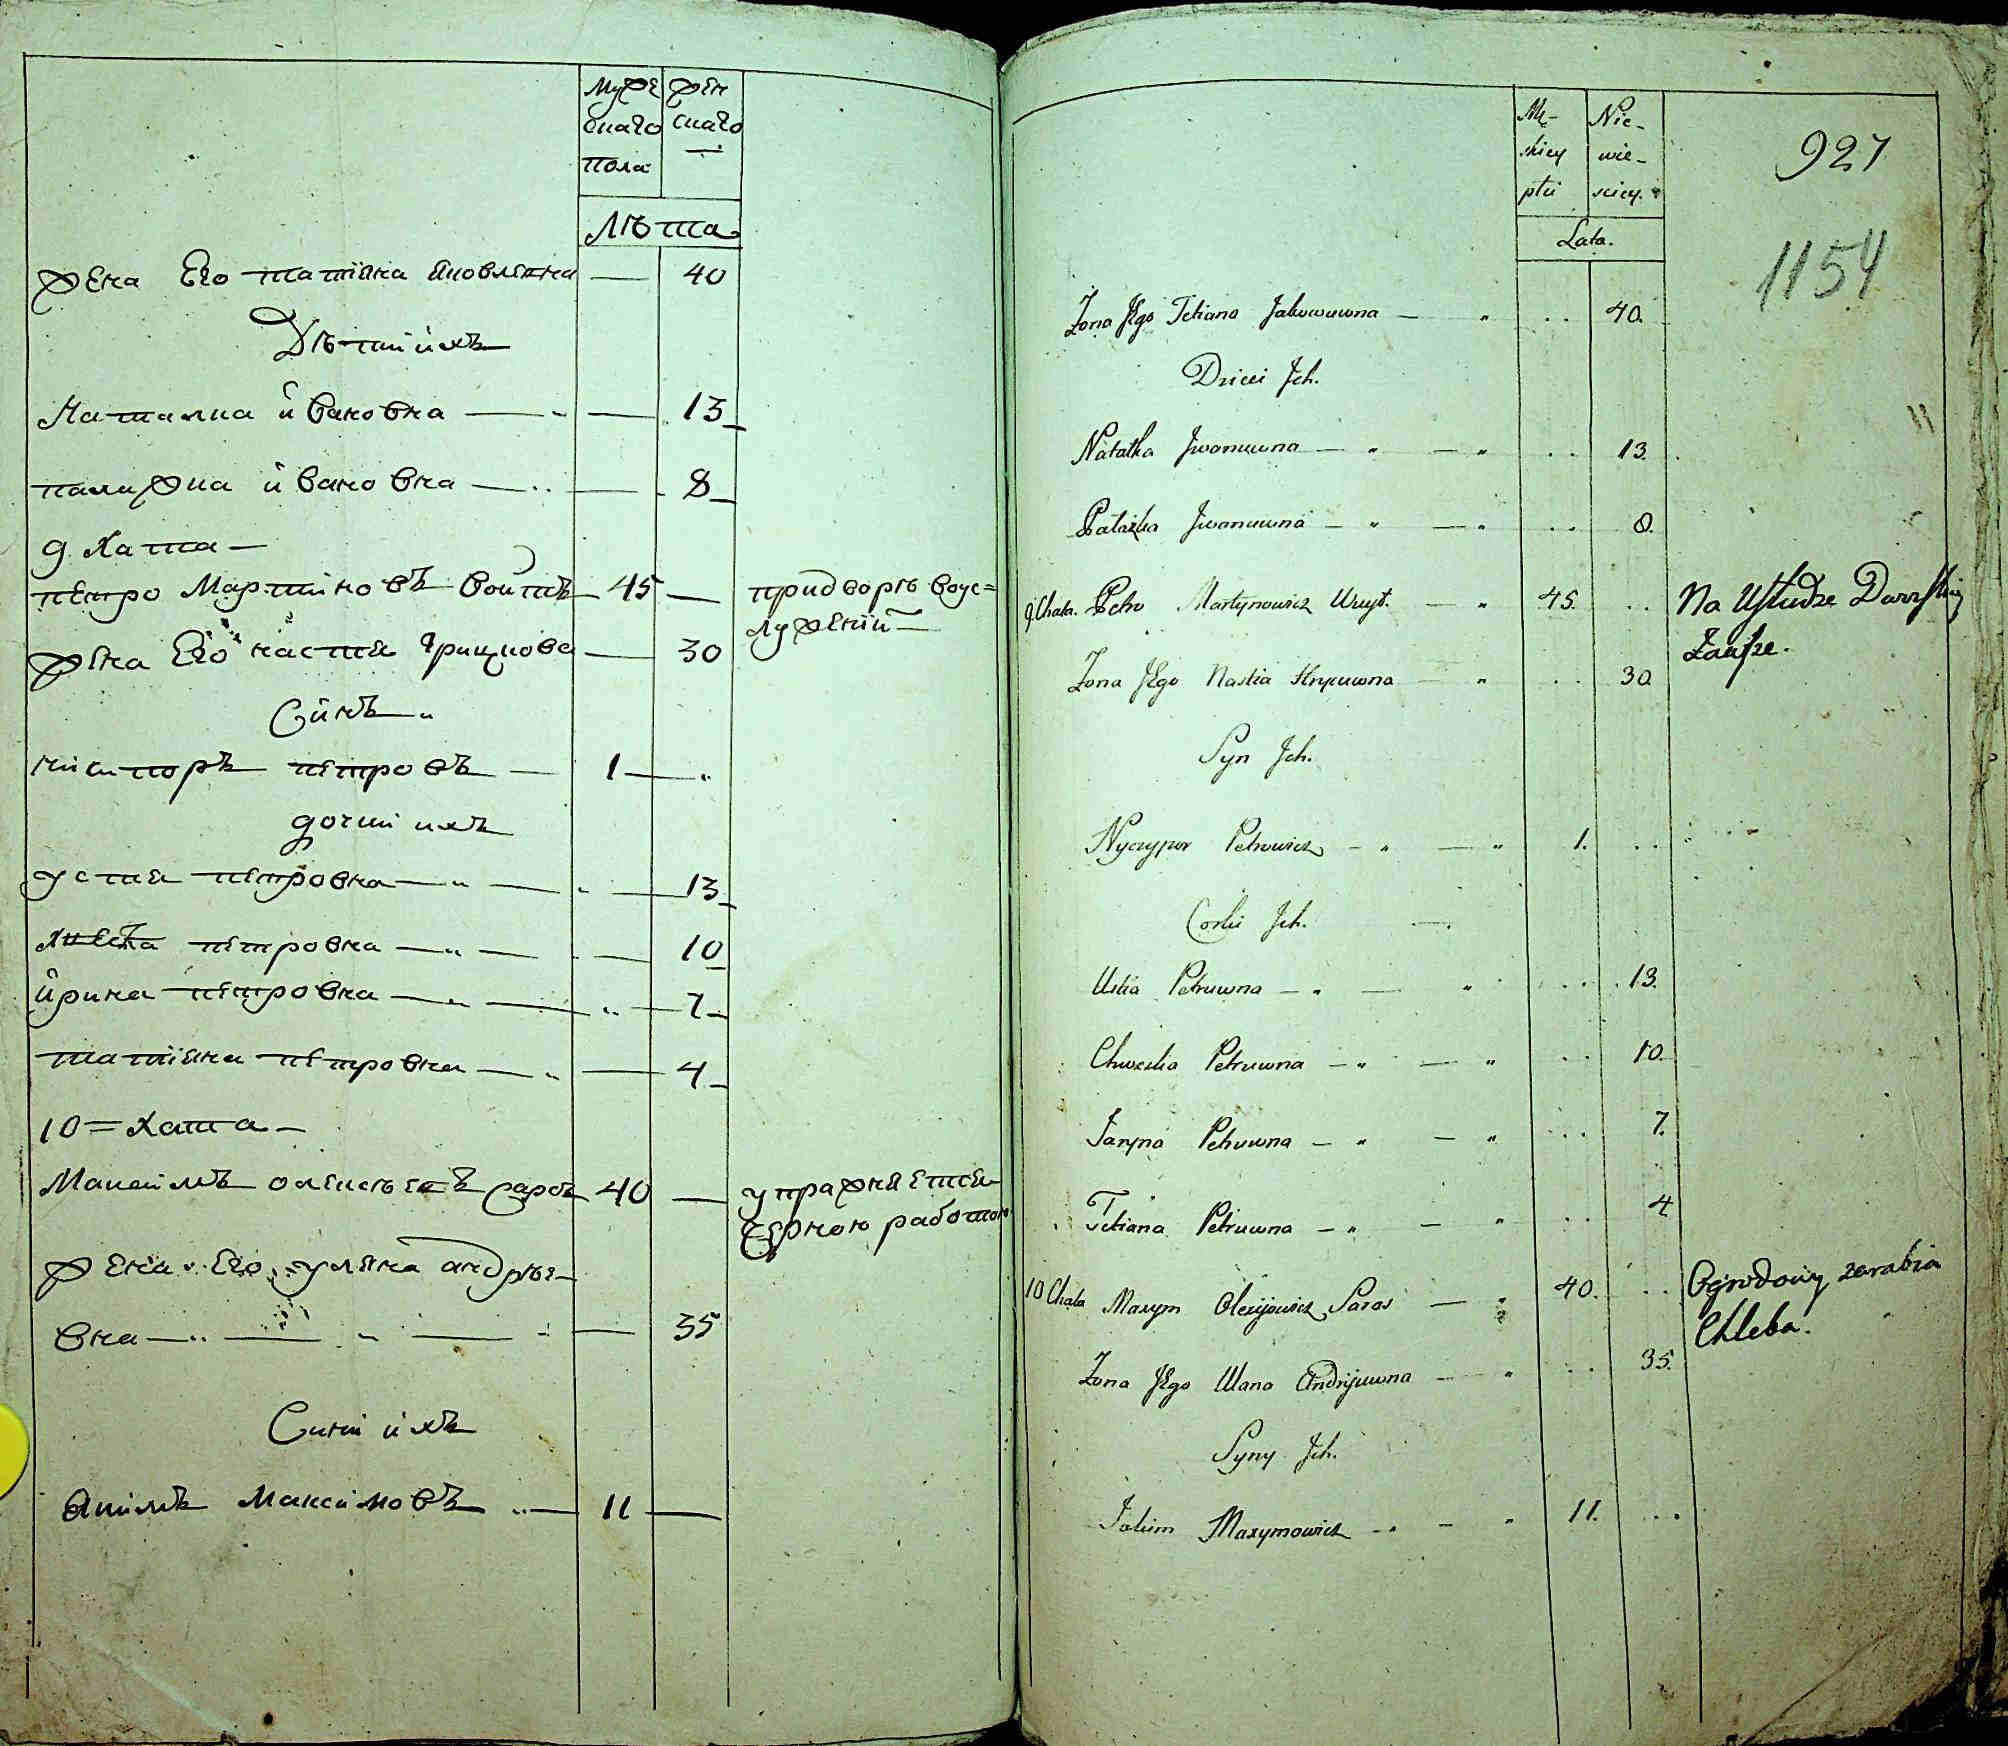 Муже
скаго
пола
жен
скаго
Лѣта
жена Его татіяна яковлевна — 40
Дѣти ихъ
Наталка ивановна — 13
палажка ивановна — 8
9 Хата
петро Мартиновъ войтъ 45 —
придворѣ воус=
луженіи
жена Его настя Грицкова — 30
Синъ
ничипоръ петровъ — 1 —
дочки ихъ
устя петровна — 13
петровна — 10
ирина петровна — 7
татіяна петровна — 4
10 = Хата —
Максимъ олексѣевъ 40 —
упражняется
черною работою
жена Его уляна андрѣе-
вна — 35
Сини ихъ
якимъ Максимовъ — 11 —
Mę-
skiey
płci
Nie-
wie-
sciey.
Lata.
927
1154
Żona Jego Tetiana Jakowuwna — 40.
Dzieci Jch.
Natałka Jwanuwna — 13.
Pałażka Jwanuwna — 8.
9 Chata. Petro Martynowicz Wuyt. — 45.
Na Usłudze Dworskiey
Zawsze.
Żona Jego Nastia Hrycuwna — 30.
Syn Jch.
Nyczypor Petrowicz — 1.
Corki Jch.
Ustia Petruwna — 13.
Chweska Petruwna — 10.
Jaryna Petruwna — 7.
Tetiana Petruwna — 4.
10 Chata Maxym Olexijowicz — 40.
Ogrodowy zarabia
Chleba.
Żona Jego Ulana Andrijuwna — 35.
Syny Jch.
Jakim Maxymowicz — 11.